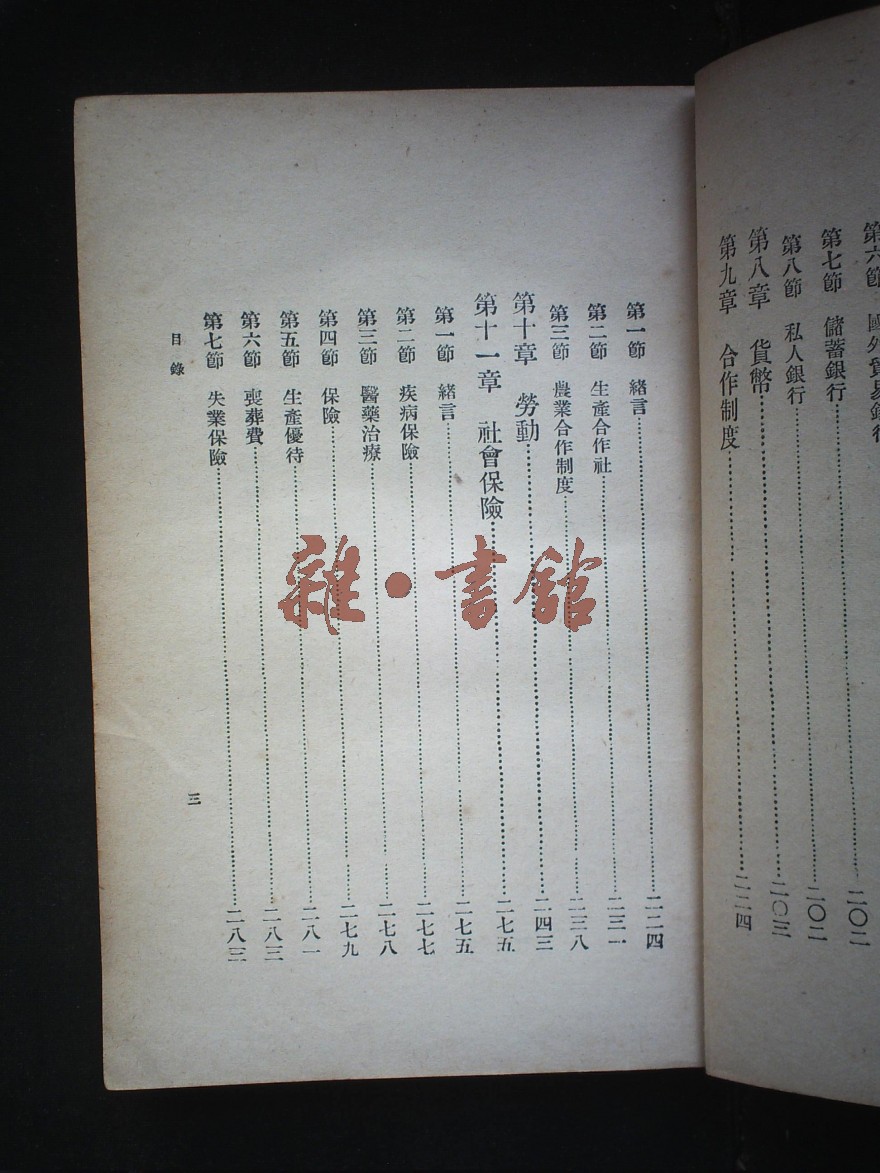 第七節　儲蓄銀行……二〇二
第八節　私人銀行……二〇二
第八章　貨幣……二〇三
第九章　合作制度……二二四
第一節　緒言……二二四
第二節　生產合作社……二三一
第三節　農業合作制度……二三八
第十章　勞動……二四三
第十一章　社會保險……二七五
第一節　緒言……二七五
第二節　疾病保險……二七七
第三節　醫藥治療……二七八
第四節　保險……二七九
第五節　生產優待……二八一
第六節　喪葬費……二八三
第七節　失業保險……二八三
目錄
三
雜·書館